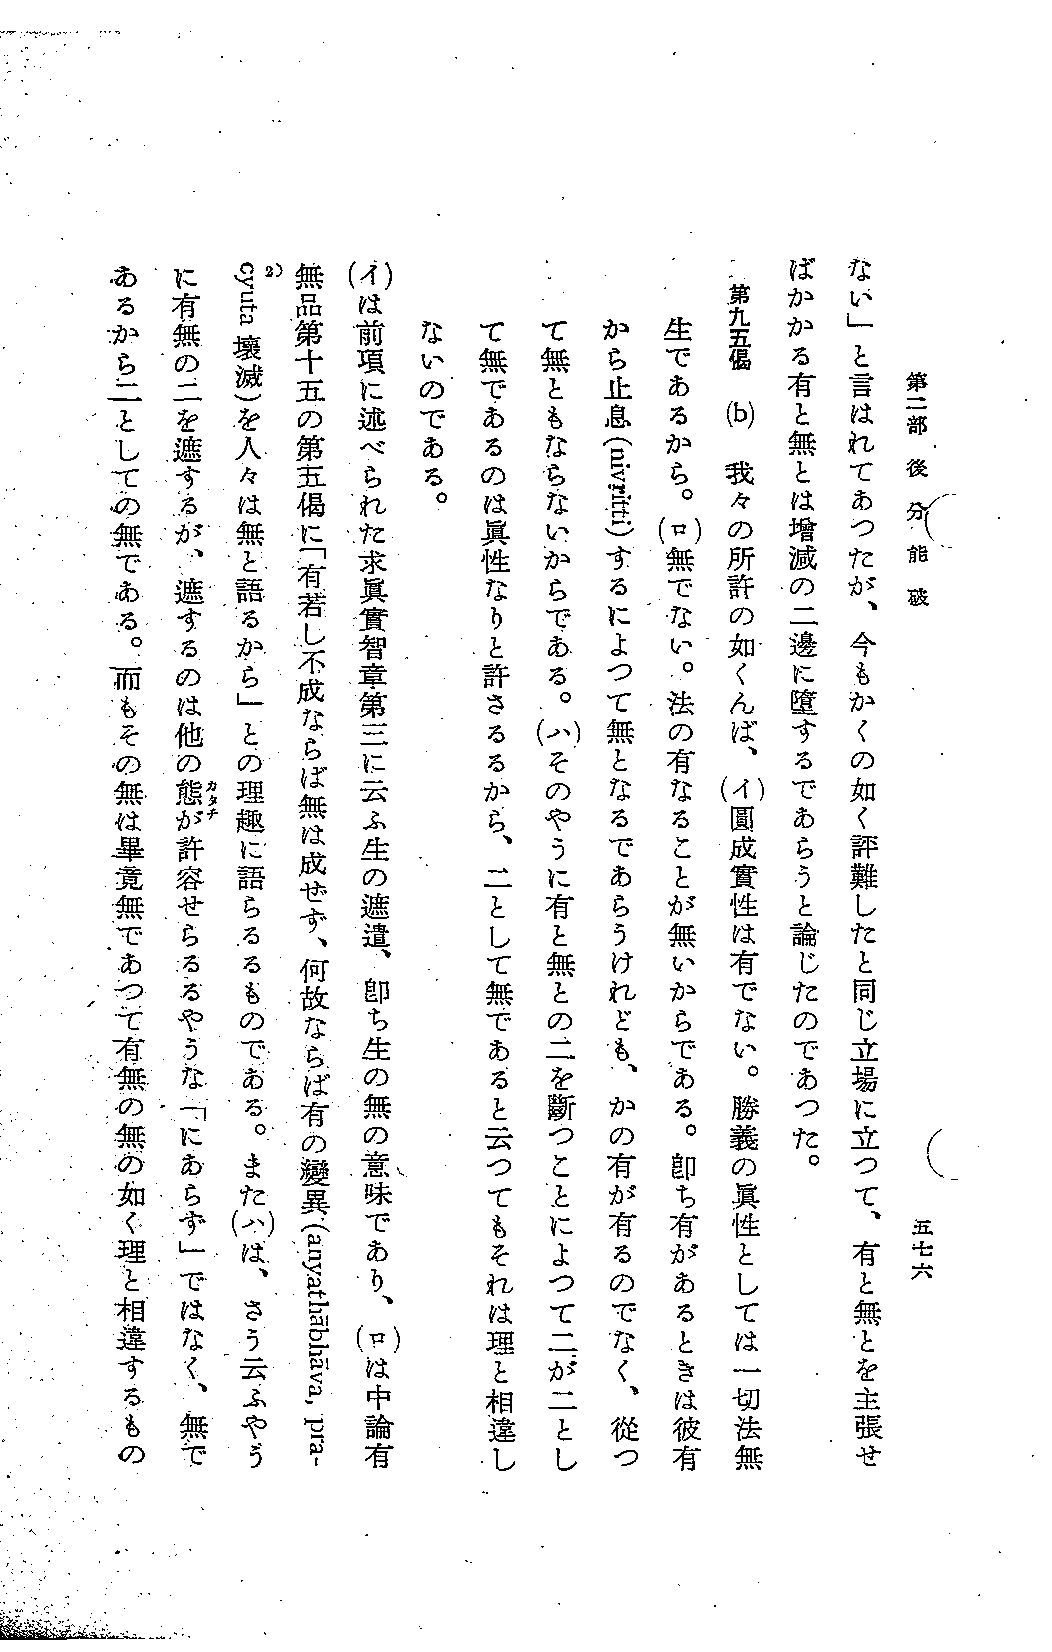 第二部 後分能破
五七六
ない」と言はれてあつたが、今もかくの如く評難したと同じ立場に立つて、有と無とを主張せ
ばかかる有と無とは增減の二邊に墮するであらうと論じたのであつた。
第九五偈 (b) 我々の所許の如くんば、(イ)圓成實性は有でない。勝義の眞性としては一切法無
生であるから。(ロ)無でない。法の有なることが無いからである。卽ち有があるときは彼有
から止息(nivṛitti)するによつて無となるであらうけれども、かの有が有るのでなく、從つ
て無ともならないからである。(ハ)そのやうに有と無との二を斷つことによつて二が二とし
て無であるのは眞性なりと許さるるから、二として無であると云つてもそれは理と相違し
ないのである。
(イ)は前項に述べられた求眞實智章第三に云ふ生の遮遣、卽ち生の無の意味であり、(ロ)は中論有
無品第十五の第五偈に「有若し不成ならば無は成せず、何故ならば有の變異(anyathābhāva, pra-
cyuta 壞滅)を人々は無と語るから」との理趣に語らるるものである。また(ハ)は、さう云ふやう
2)
に有無の二を遮するが、遮するのは他の態カタチが許容せらるるやうな「にあらず」ではなく、無で
あるから二としての無である。而もその無は畢竟無であつて有無の無の如く理と相違するもの